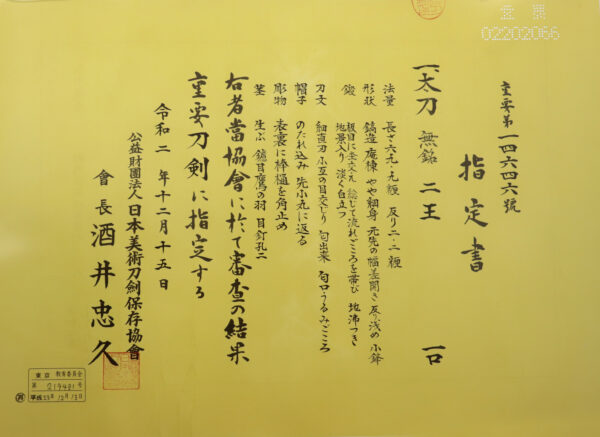 重要第一四六四六號
指定書
一、太刀 無銘 二王 一口
法量 長さ六九・九糎 反り二・二糎
形状 鎬造 庵棟 やや細身 元先の幅差開き 反り浅め 小鋒
鍛 板目に杢交え 総じて流れごころを帯び 地沸つき
地景入り 淡く白立つ
刃文 細直刃 小互の目交じり 匂出来 匂口うるみごころ
帽子 のたれ込み 先小丸に返る
彫物 表裏に棒樋を角止め
茎 生ぶ 鑢目鷹の羽 目釘孔二
右者當協會に於て審査の結果
重要刀剣に指定する
令和二年十二月十五日
公益財團法人日本美術刀劍保存協會
會長 酒井忠久
東京 教育委員会
第 219481 号
平成23年12月13日
02202066